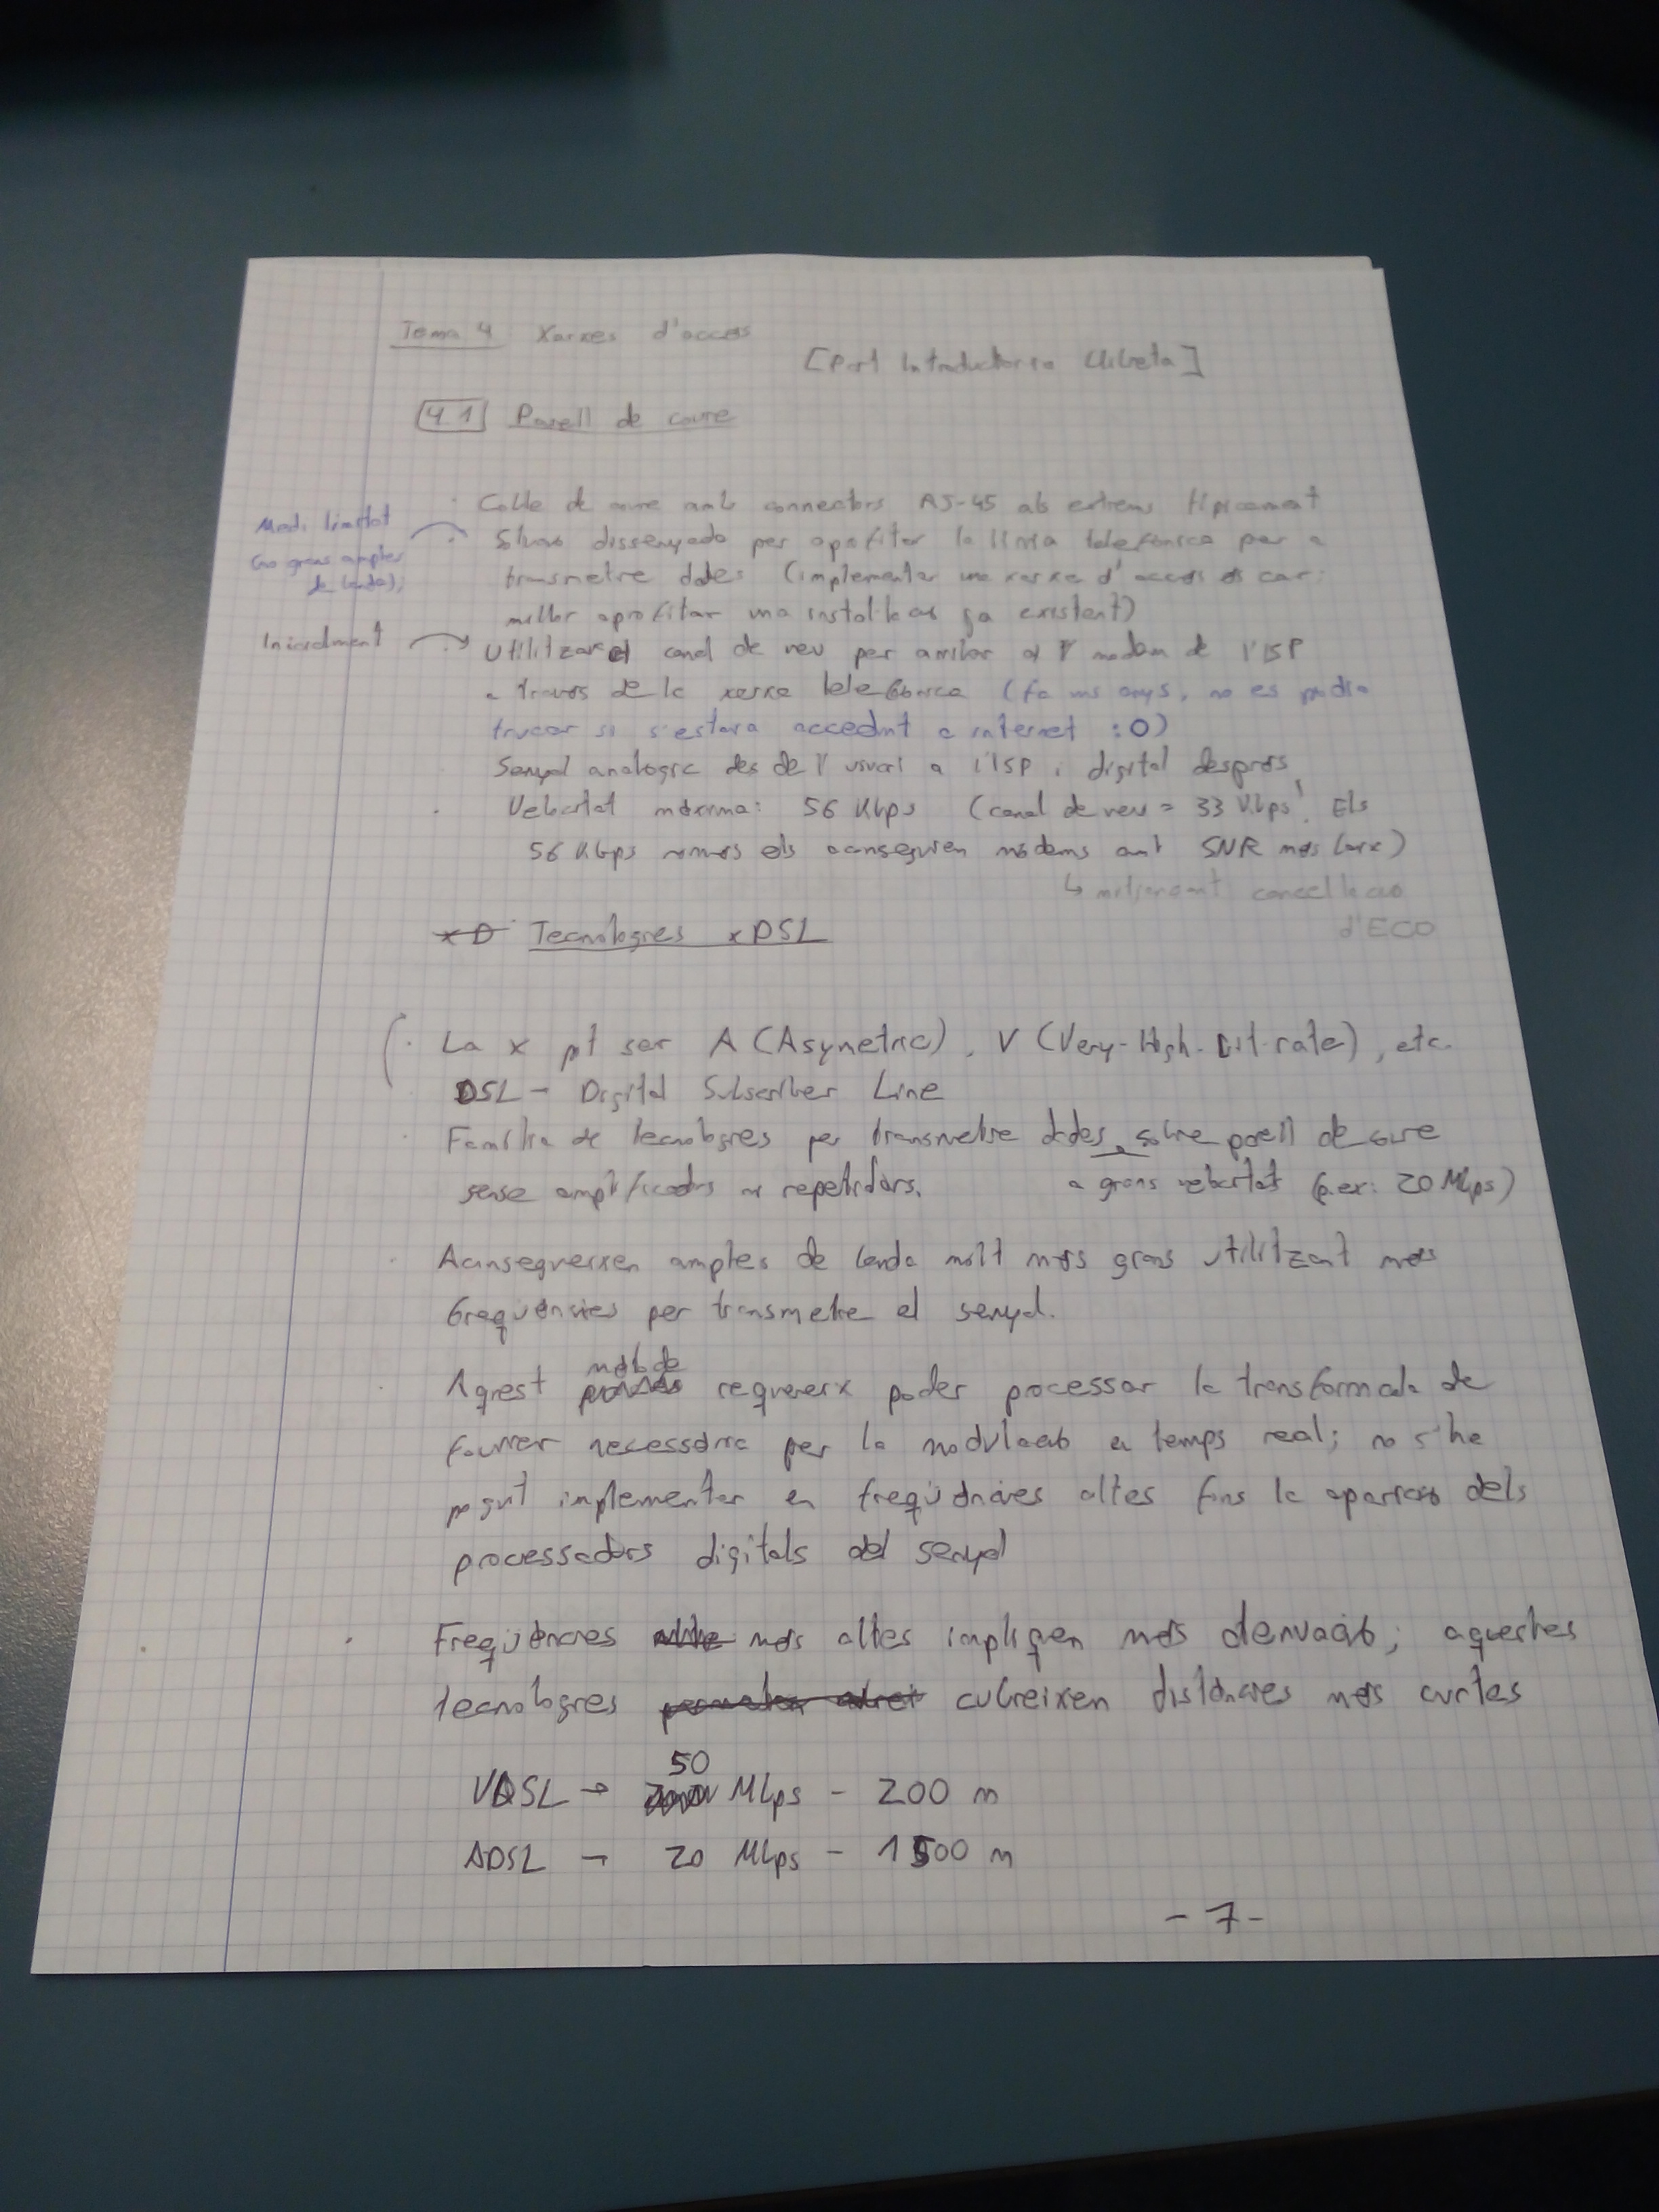 Tema 4 Xarxes d'accés
[Part Introductoria llibreta]
4.1 Parell de coure
Cable de coure amb connectors RJ-45 als extrems típicament
Medi limitat
(no grans amples
de banda);
Solució dissenyada per aprofitar la línia telefònica per a
transmetre dades (implementar una xarxa d'accés és car;
millor aprofitar una instal·lació ja existent)
Inicialment
Utilitzar el canal de veu per arribar al mòdem de l'ISP
a través de la xarxa telefònica (fa uns anys, no es podia
trucar si s'estava accedint a internet :O)
Senyal analògic des de l'usuari a l'ISP i digital després
Velocitat màxima: 56 Kbps (canal de veu = 33 Kbps. Els
56 Kbps només els aconseguien mòdems amb SNR més baix)
↳ mitjançant cancel·lació
d'ECO
Tecnologies xDSL
La x pot ser A (Asymetric), V (Very-High-Bit-rate), etc.
DSL - Digital Subscriber Line
Família de tecnologies per transmetre dades sobre parell de coure
sense amplificadors ni repetidors. a grans velocitats (p.ex: 20 Mbps)
Aconsegueixen amples de banda molt més grans utilitzant més
freqüències per transmetre el senyal.
Aquest mètode requereix poder processar la transformada de
fourier necessària per la modulació en temps real; no s'ha
pogut implementar en freqüències altes fins la aparició dels
processadors digitals del senyal
Freqüències més altes impliquen més atenuació; aquestes
tecnologies cubreixen distàncies més curtes
VDSL → 50 Mbps - 200 m
ADSL → 20 Mbps - 1500 m
- 7 -